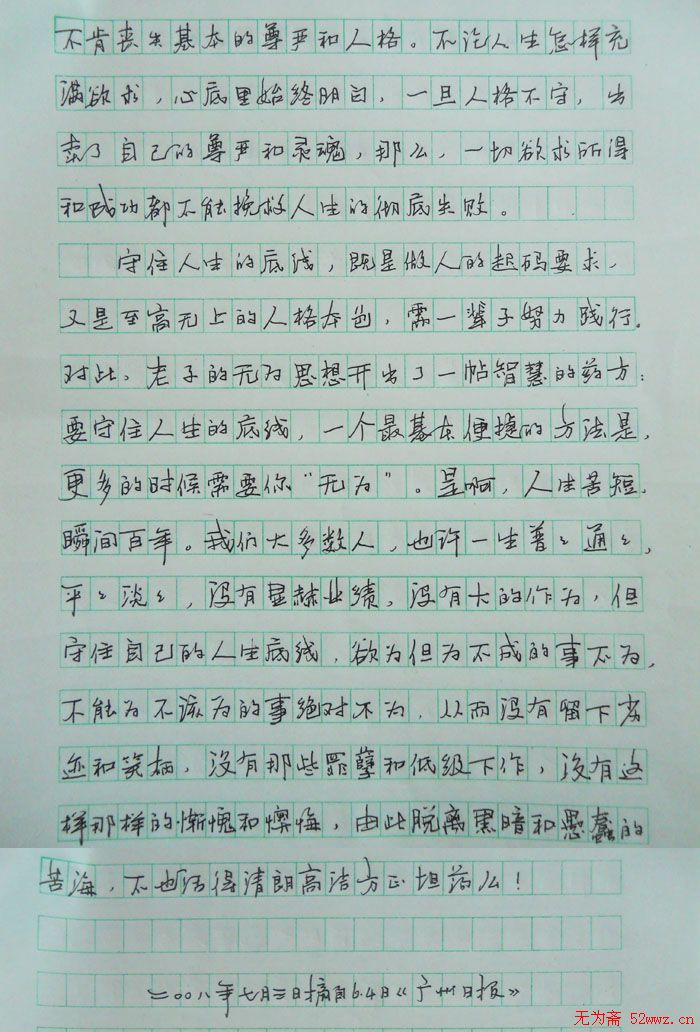 不肯丧失基本的尊严和人格。不论人生怎样充
满欲求，心底里始终明白，一旦人格不守，出
卖了自己的尊严和灵魂，那么，一切欲求所得
和成功都不能挽救人生的彻底失败。
守住人生的底线，既是做人的起码要求，
又是至高无上的人格本色，需一辈子努力践行。
对此，老子的无为思想开出了一帖智慧的药方：
要守住人生的底线，一个最基本便捷的方法是，
更多的时候需要你“无为”。是啊，人生苦短，
瞬间百年。我们大多数人，也许一生普〻通〻，
平〻淡〻，没有显赫业绩，没有大的作为，但
守住自己的人生底线，欲为但为不成的事不为，
不能为不该为的事绝对不为，从而没有留下劣
迹和笑柄，没有那些罪孽和低级下作，没有这
样那样的惭愧和懊悔，由此脱离黑暗和愚蠢的
苦海，不也活得清朗高洁方正坦荡么！
二〇〇八年七月三日摘自6.4日《广州日报》
无为斋 52wwz.cn